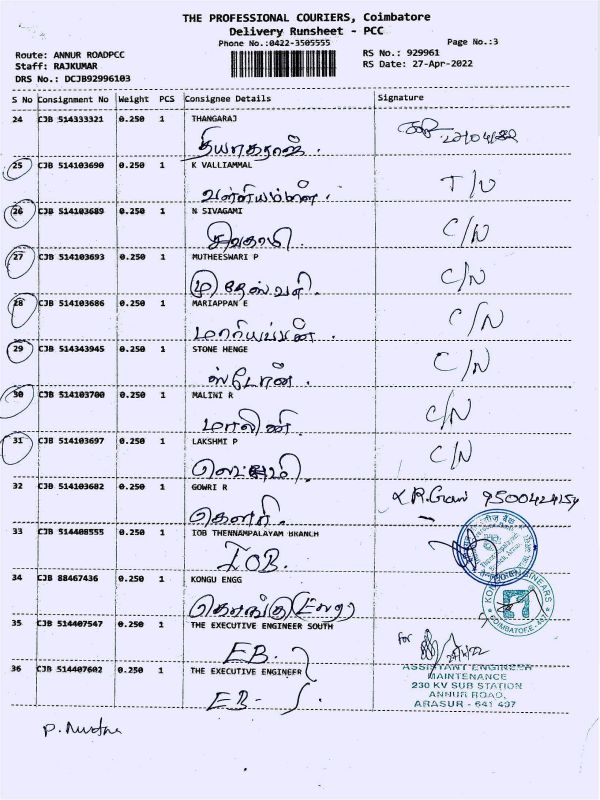 THE PROFESSIONAL COURIERS, Coimbatore
Delivery Runsheet - PCC
Phone No.:0422-3505555
Page No.:3
Route: ANNUR ROADPCC
RS No.: 929961
Staff: RAJKUMAR
RS Date: 27-Apr-2022
DRS No.: DCJB92996103
S No Consignment No Weight PCS Consignee Details Signature
24 CJB 514333321 0.250 1 THANGARAJ
தியாகராஜ்.
25 CJB 514103690 0.250 1 K VALLIAMMAL
வள்ளியம்மாள். T/U
26 CJB 514103689 0.250 1 N SIVAGAMI
சிவகாமி. C/N
27 CJB 514103693 0.250 1 MUTHEESWARI P
C/N
28 CJB 514103686 0.250 1 MARIAPPAN E
மாரியப்பன். C/N
29 CJB 514343945 0.250 1 STONE HENGE
ஸ்டோன். C/N
30 CJB 514103700 0.250 1 MALINI R
மாலினி. C/N
31 CJB 514103697 0.250 1 LAKSHMI P
C/N
32 CJB 514103682 0.250 1 GOWRI R
கௌரி. 9500424154
33 CJB 514408555 0.250 1 IOB THENNAMPALAYAM BRANCH
IOB.
34 CJB 88467436 0.250 1 KONGU ENGG
கொங்கு
35 CJB 514407547 0.250 1 THE EXECUTIVE ENGINEER SOUTH
EB. for
36 CJB 514407602 0.250 1 THE EXECUTIVE ENGINEER
EB-
ASSISTANT ENGINEER
MAINTENANCE
230 KV SUB STATION
ANNUR ROAD,
ARASUR - 641 407